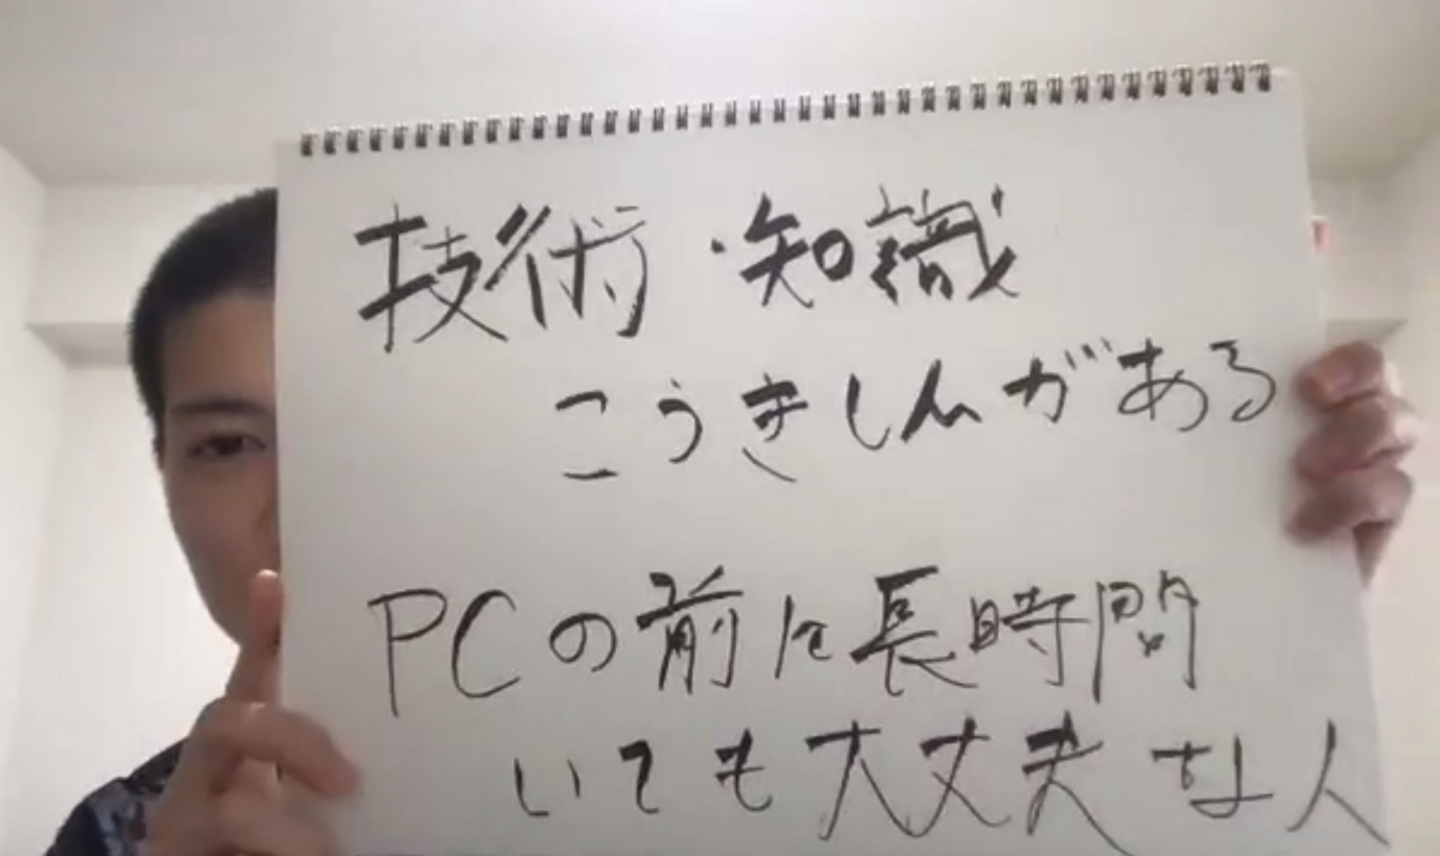 技術・知識
こうきしんがある
PCの前に長時間
いても大丈夫な人